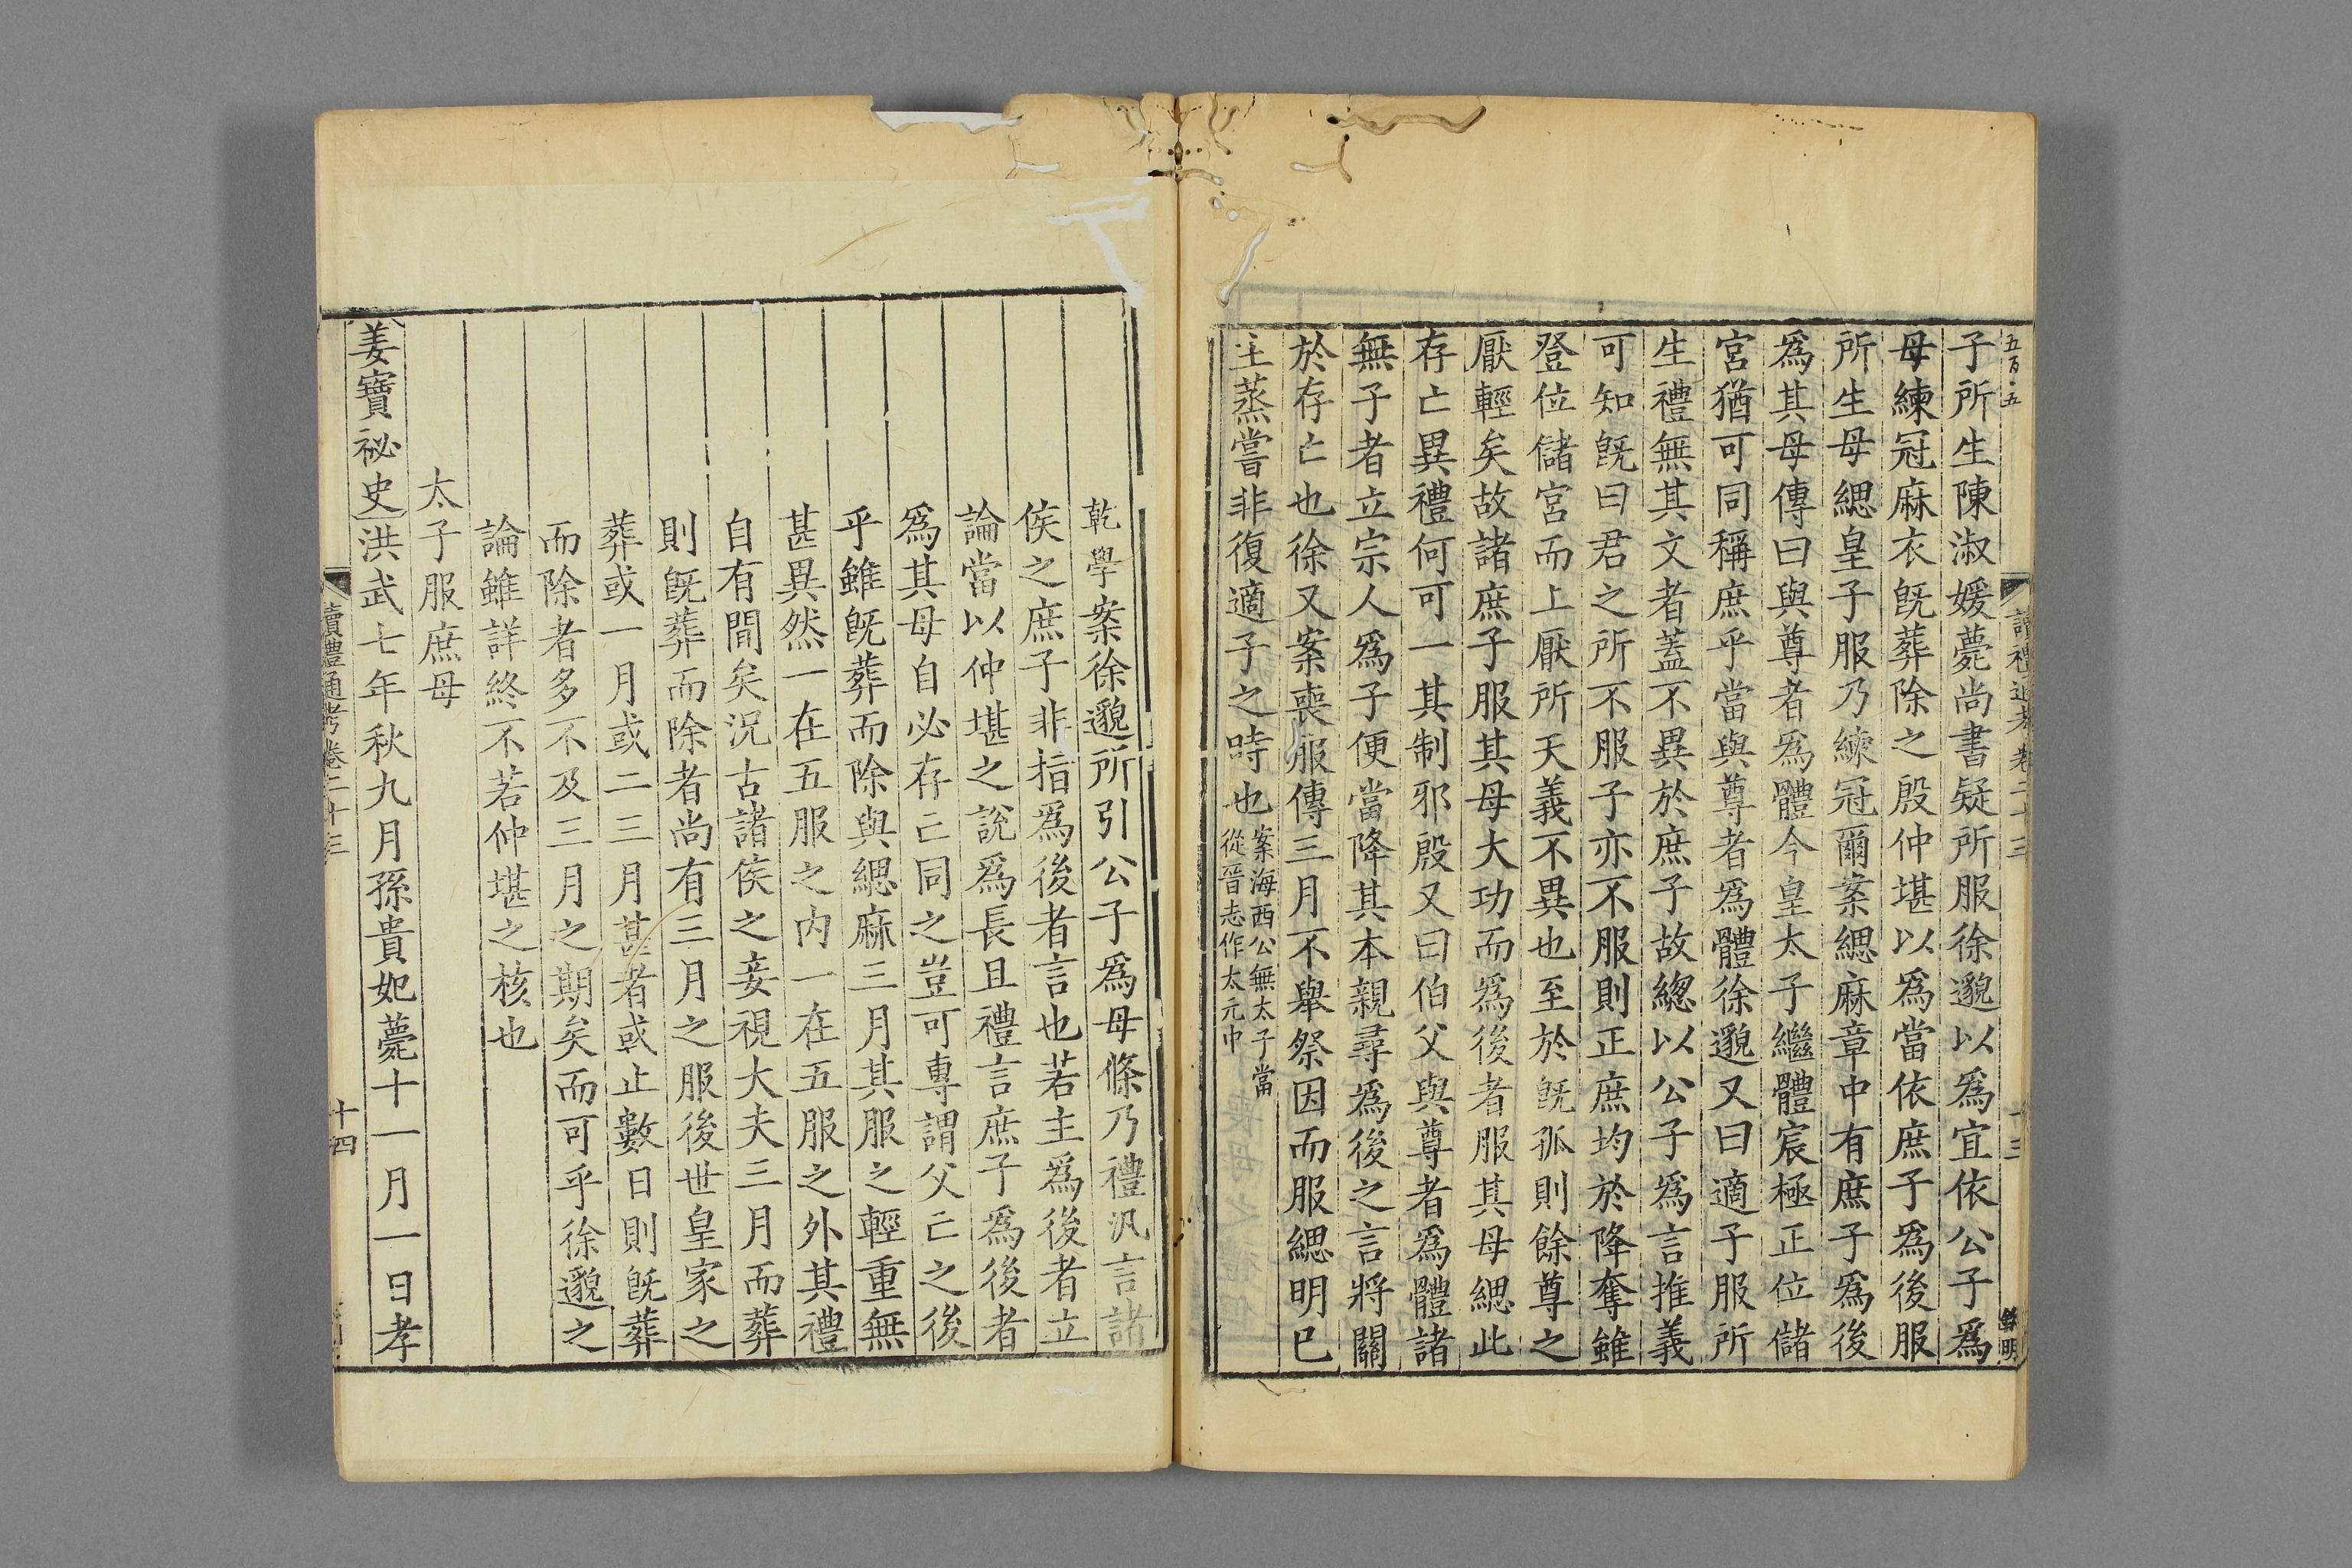 五百二五
讀禮通考卷二十三
十三
子所生陳淑媛薨尚書疑所服徐邈以爲宜依公子爲
母練冠麻衣旣葬除之殷仲堪以爲當依庶子爲後服
所生母緦皇子服乃練冠爾案緦麻章中有庶子爲後
爲其母傳曰與尊者爲體今皇太子繼體宸極正位儲
宮猶可同稱庶乎當與尊者爲體徐邈又曰適子服所
生禮無其文者蓋不異於庶子故緫以公子爲言推義
可知旣曰君之所不服子亦不服則正庶均於降奪雖
登位儲宮而上厭所天義不異也至於旣孤則餘尊之
厭輕矣故諸庶子服其母大功而爲後者服其母緦此
存亡異禮何可一其制邪殷又曰伯父與尊者爲體諸
無子者立宗人爲子便當降其本親尋爲後之言將關
於存亡也徐又案喪服傳三月不舉祭因而服緦明已
主蒸嘗非復適子之時也
案海西公無太子當
從晉志作太元中
乾學案徐邈所引公子爲母條乃禮汎言諸
侯之庶子非指爲後者言也若主爲後者立
論當以仲堪之說爲長且禮言庶子爲後者
爲其母自必存亡同之豈可專謂父亡之後
乎雖旣葬而除與緦麻三月其服之輕重無
甚異然一在五服之內一在五服之外其禮
自有間矣況古諸侯之妾視大夫三月而葬
則旣葬而除者尚有三月之服後世皇家之
葬或一月或二三月甚者或止數日則旣葬
而除者多不及三月之期矣而可乎徐邈之
論雖詳終不若仲堪之核也
太子服庶母
姜寶祕史洪武七年秋九月孫貴妃薨十一月一日孝
讀禮通考卷二十三
十四